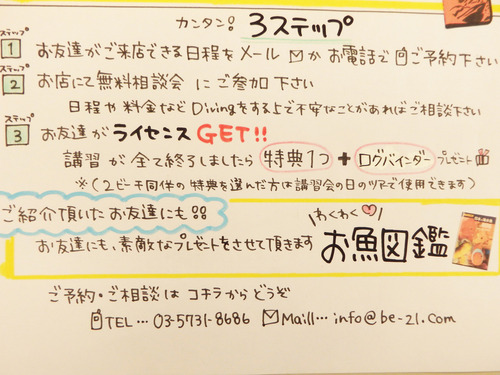 カンタン! 3ステップ
ステップ
1 お友達がご来店できる日程をメールかお電話でご予約下さい
ステップ
2 お店にて無料相談会にご参加下さい
日程や料金などDivingをする上で不安なことがあればご相談下さい
ステップ
3 お友達がライセンスGET!!
講習が全て終了しましたら 特典1つ + ログバインダー プレゼント
※(2ビーチ同伴の特典を選んだ方は講習会の日のツアーで使用できます)
ご紹介頂いたお友達にも!!
わくわく
お友達にも、素敵なプレゼントをさせて頂きます お魚図鑑
ご予約・ご相談はコチラからどうぞ
TEL… 03-5731-8686 Maill… info@be-21.com